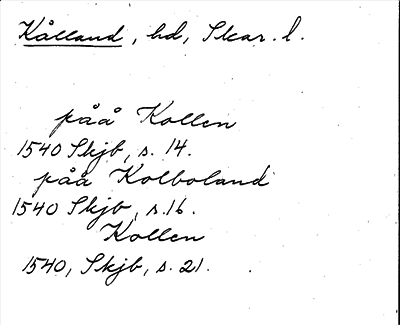 Kålland, hd, Skar. l.
påå Kollen
1540 Skjb, s. 14.
påa Kolboland
1540 Skjb, s. 16.
Kollen
1540, Skjb, s. 21.